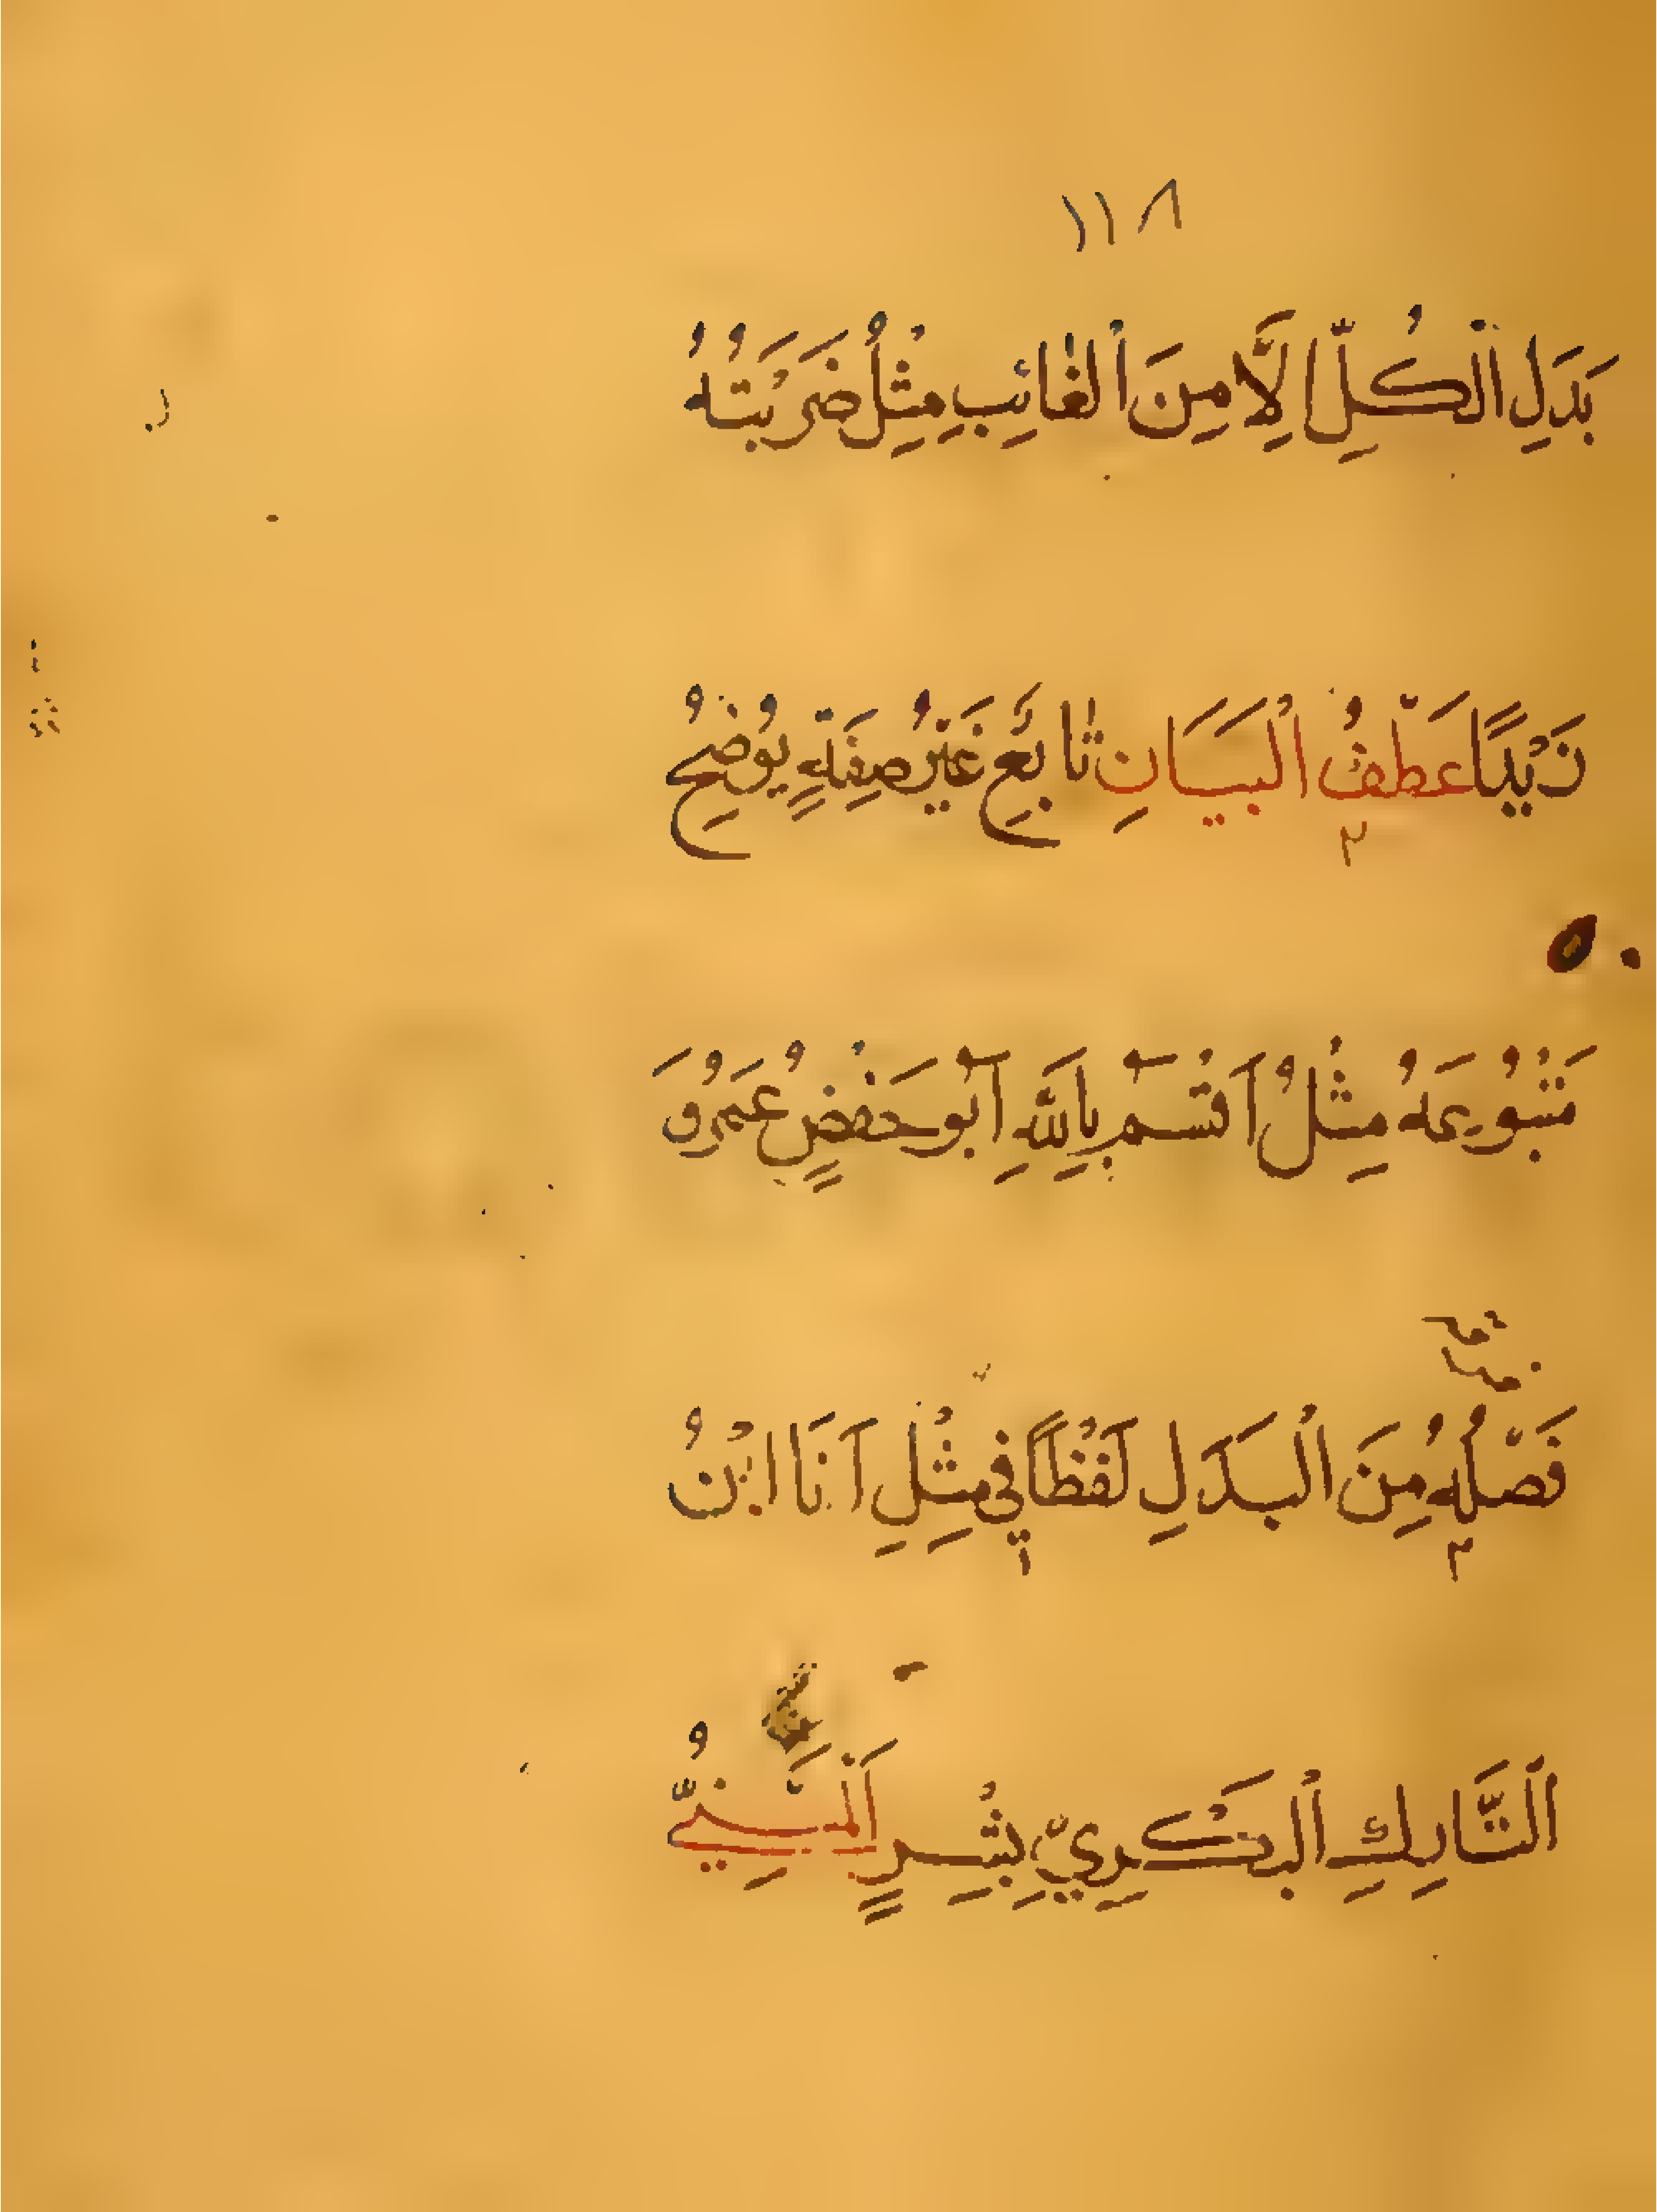 ١١٨
بَدَلِ اْلكُلِّ اِلَّا مِنَ اْلغَائِبِ مِثْلُ ضَرَبْتُهُ
زَيْدًا عَطْفُ اْلبَيَانِ تَابِعٌ غَيْرُ صِفَةٍ يُوضِحُ
مَتْبُوعَهُ مِثْلُ اَقْسَمَ بِاللَّهِ اَبُو حَفْصٍ عُمَرُ وَ
فَصْلُهُ مِنَ اْلبَدَلِ لَفْظًا فِي مِثْلِ اَنَا ابْنُ
اَلتَّارِكِ اْلبَكْرِيِّ بِشْرٍ اَلْمَبْنِيُّ